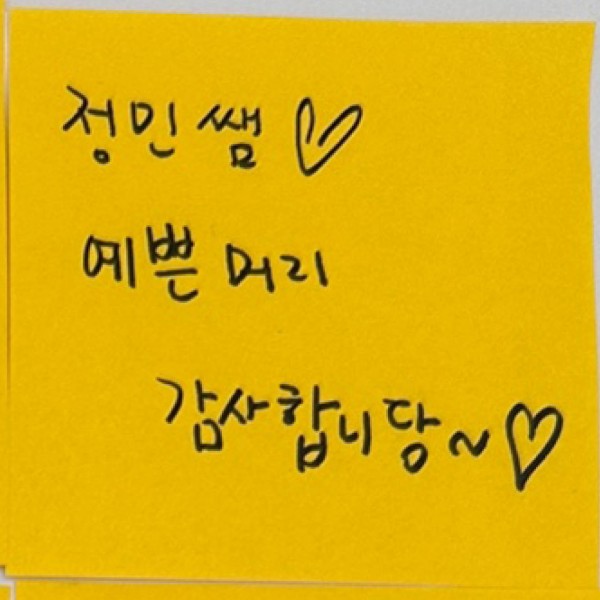 정민쌤♡
예쁜 머리
감사합니당~♡